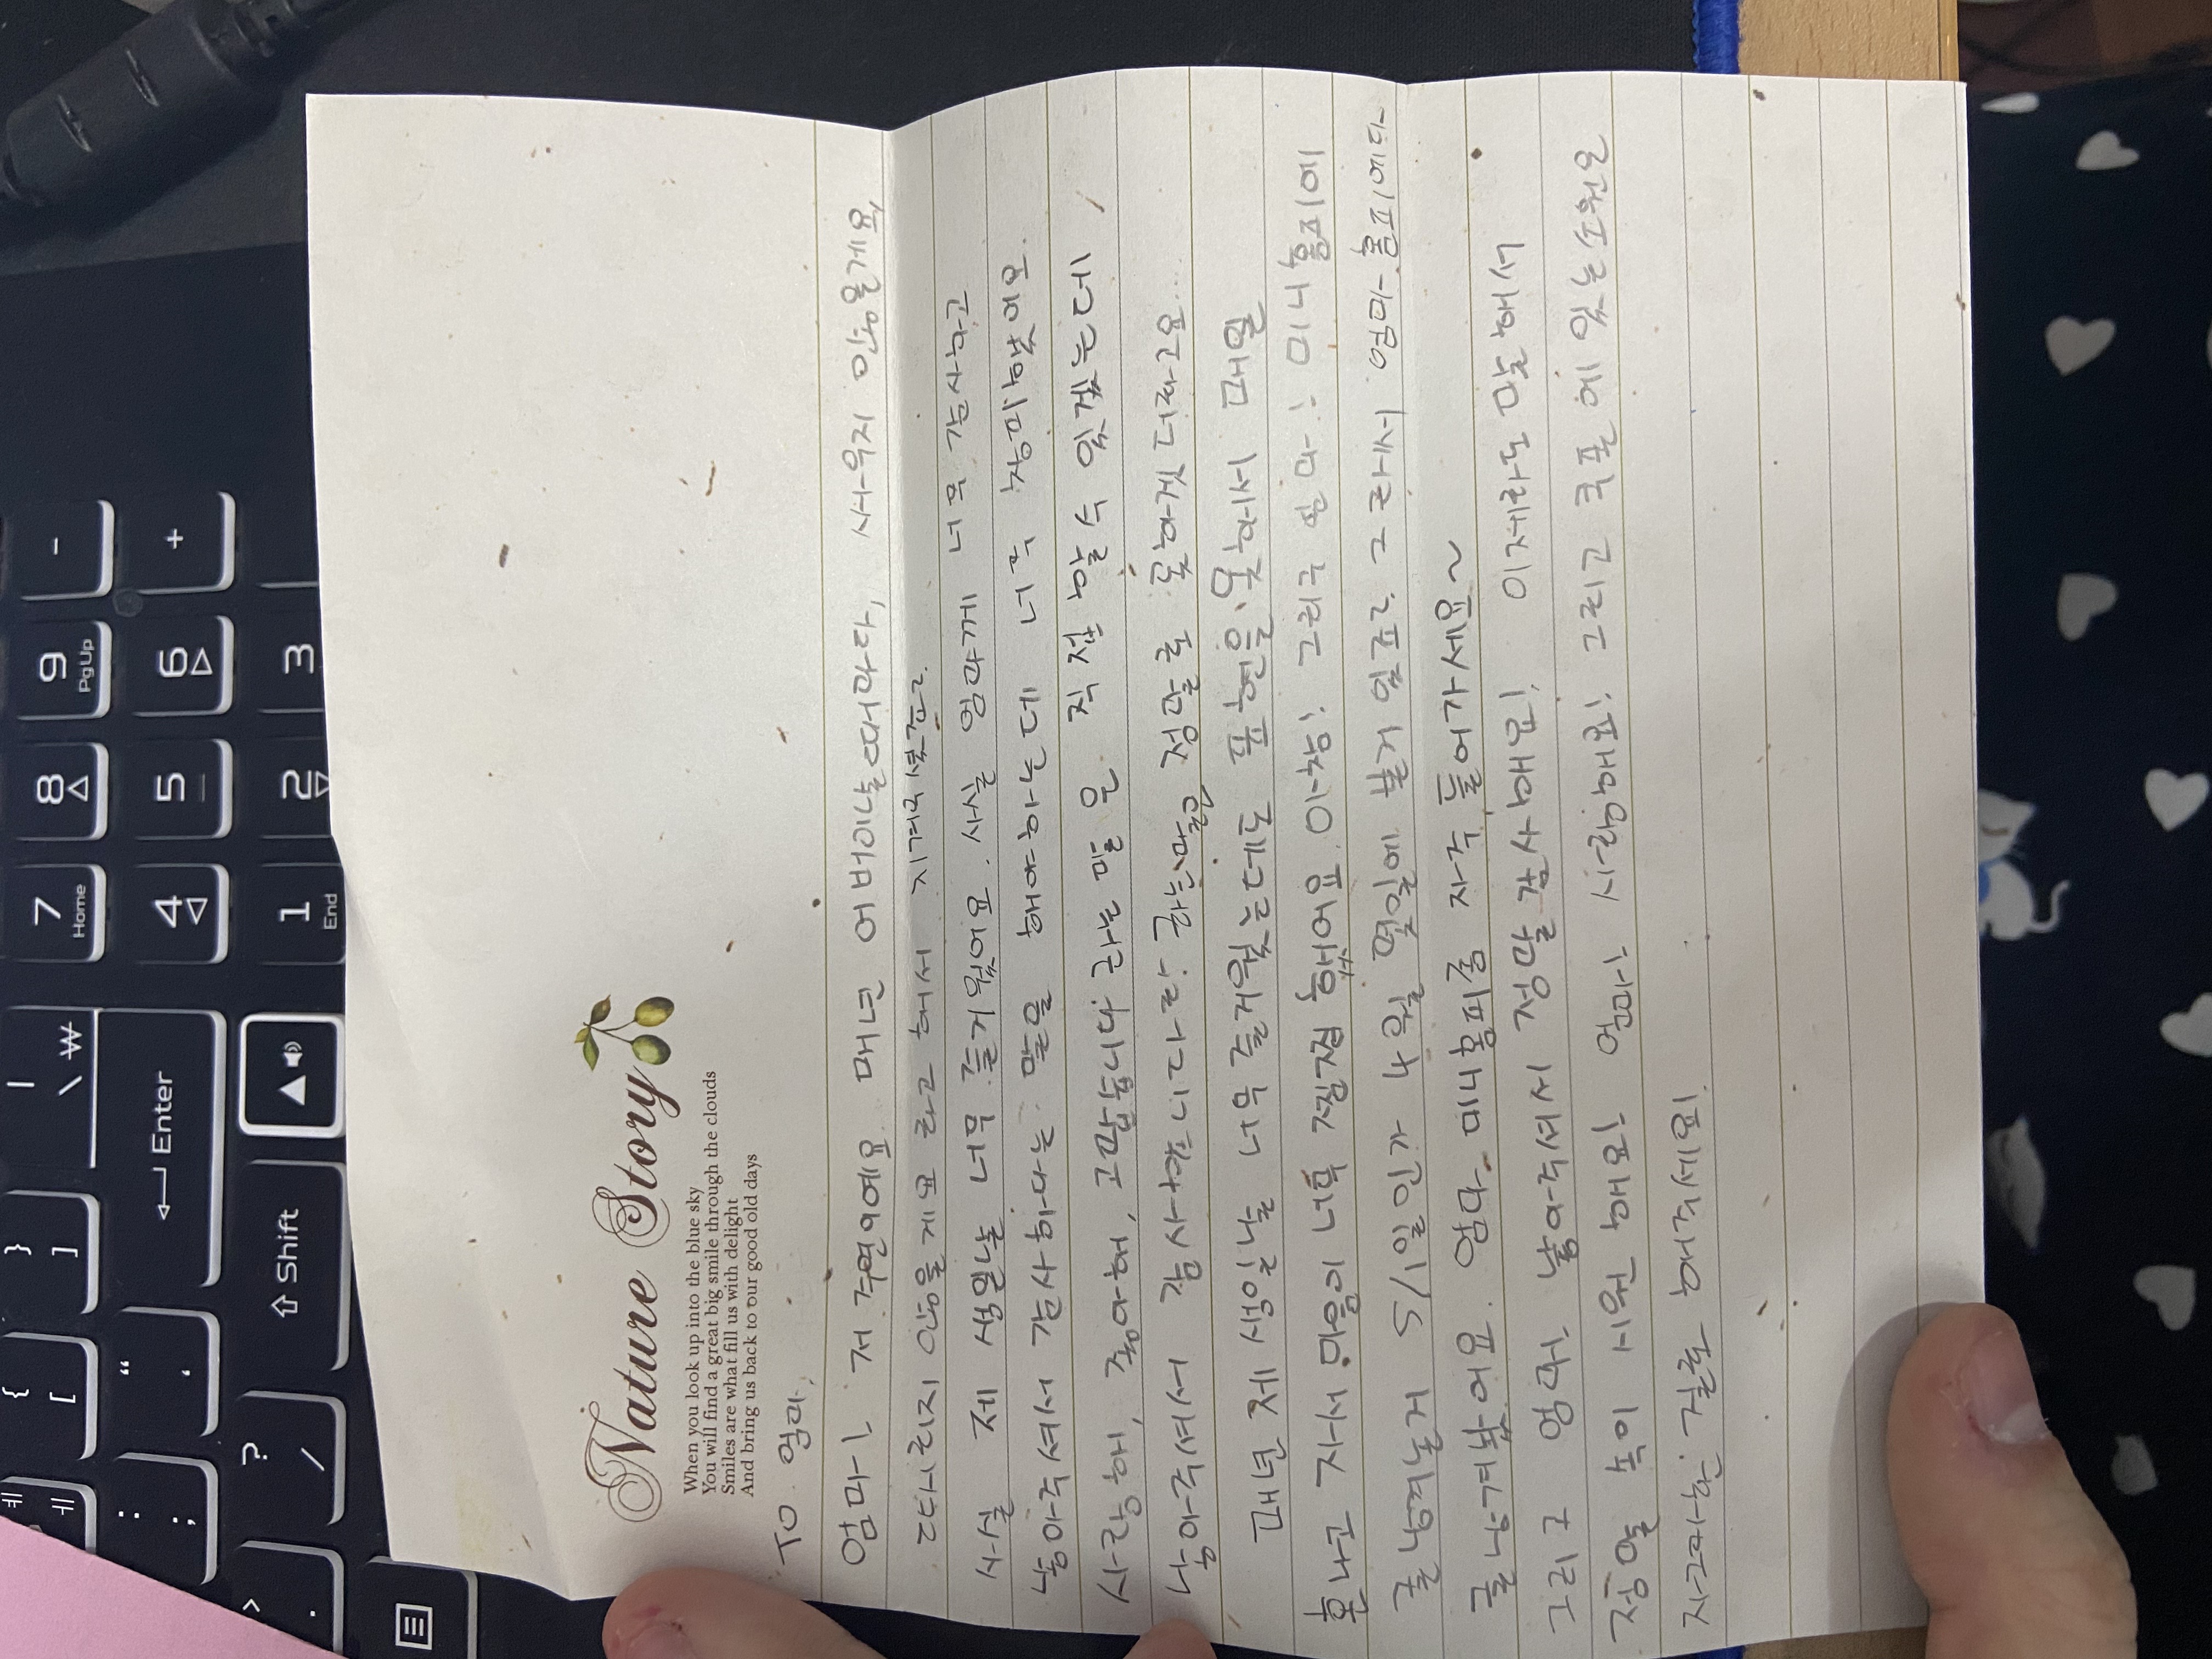 ㅖ
ㅔ
{
[
}
]
|
\ ₩
7
Home
8
9
PgUp
-
:
;
“
‘
Enter
4
5
6
+
>
.
?
/
Shift
1
End
2
3
Nature Story
When you look up into the blue sky
You will find a great big smile through the clouds
Smiles are what fill us with delight
And bring us back to our good old days
TO 엄마,
엄마! 저 주연이에요 매년 어버이날때마다, 싸우지 안을게요,
때리지 안을게요 라고 해서 지겨우셨죠?
사실 제 생일날 너무 즐거웠어요. 사실 엄마께 너무 감사하고
낳아주셔서 감사하다는 말을 해야하는데 너무 창피했어요.
사랑해, 좋아해, 고맙습니다 라는 말은 직접 할 수 있겠는데
낳아주셔서 감사합니다란 라는 말은 정말로 못하겟더라고요...
매년 제 생일날 너무 즐거웠는데도 표현을 못해서 매일
혼나고 자서 마음이 너무 찜찜했어요. 아참! 그리구 엄마! 미니홈피에
글남겨논거 5/1일인가 4월 몇일에 쓴거 있죠? 그래서 엄마 홈피에다
글남겨놨어요. 엄마 미니홈피좀 자주 들어가세요~
그리고 엄마! 낳아주셔서 정말 감사해요! 이제라도 말해서
정말 속이 시원해요! 엄마! 사랑해요! 그리고 쿠폰에 있는 소원은
자그마한 걸로 해주세요!